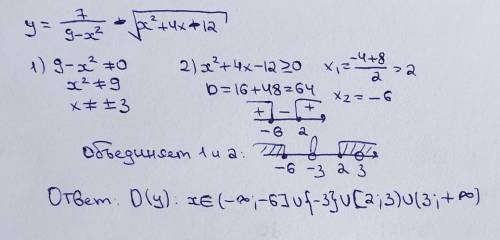 y = 7/(9-x²) - √(x²+4x-12)
1) 9-x² ≠ 0 2) x²+4x-12 ≥ 0 x₁ = (-4+8)/2 = 2
x² ≠ 9 D = 16+48 = 64 x₂ = -6
x ≠ ± 3 + - +
-6 2
Объединяет 1 и 2: -6 -3 2 3
Ответ: D(y): x∈(-∞;-6]∪{-3}∪[2;3)∪(3;+∞)